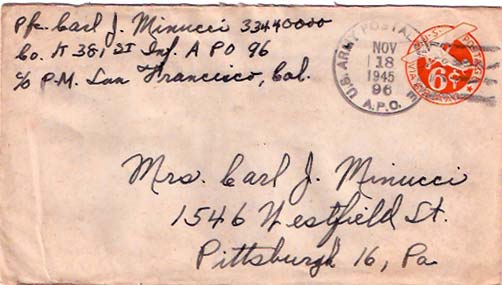 Pfc. Carl J. Minucci 33440000
Co. K 381 st Inf. APO 96
c/o P.M. San Francisco, Cal.
U.S. ARMY POSTAL
NOV
18
1945
96
A.P.O.
U.S. POSTAGE
VIA AIR MAIL
6¢
Mrs. Carl J. Minucci
1546 Westfield St.
Pittsburgh 16, Pa.